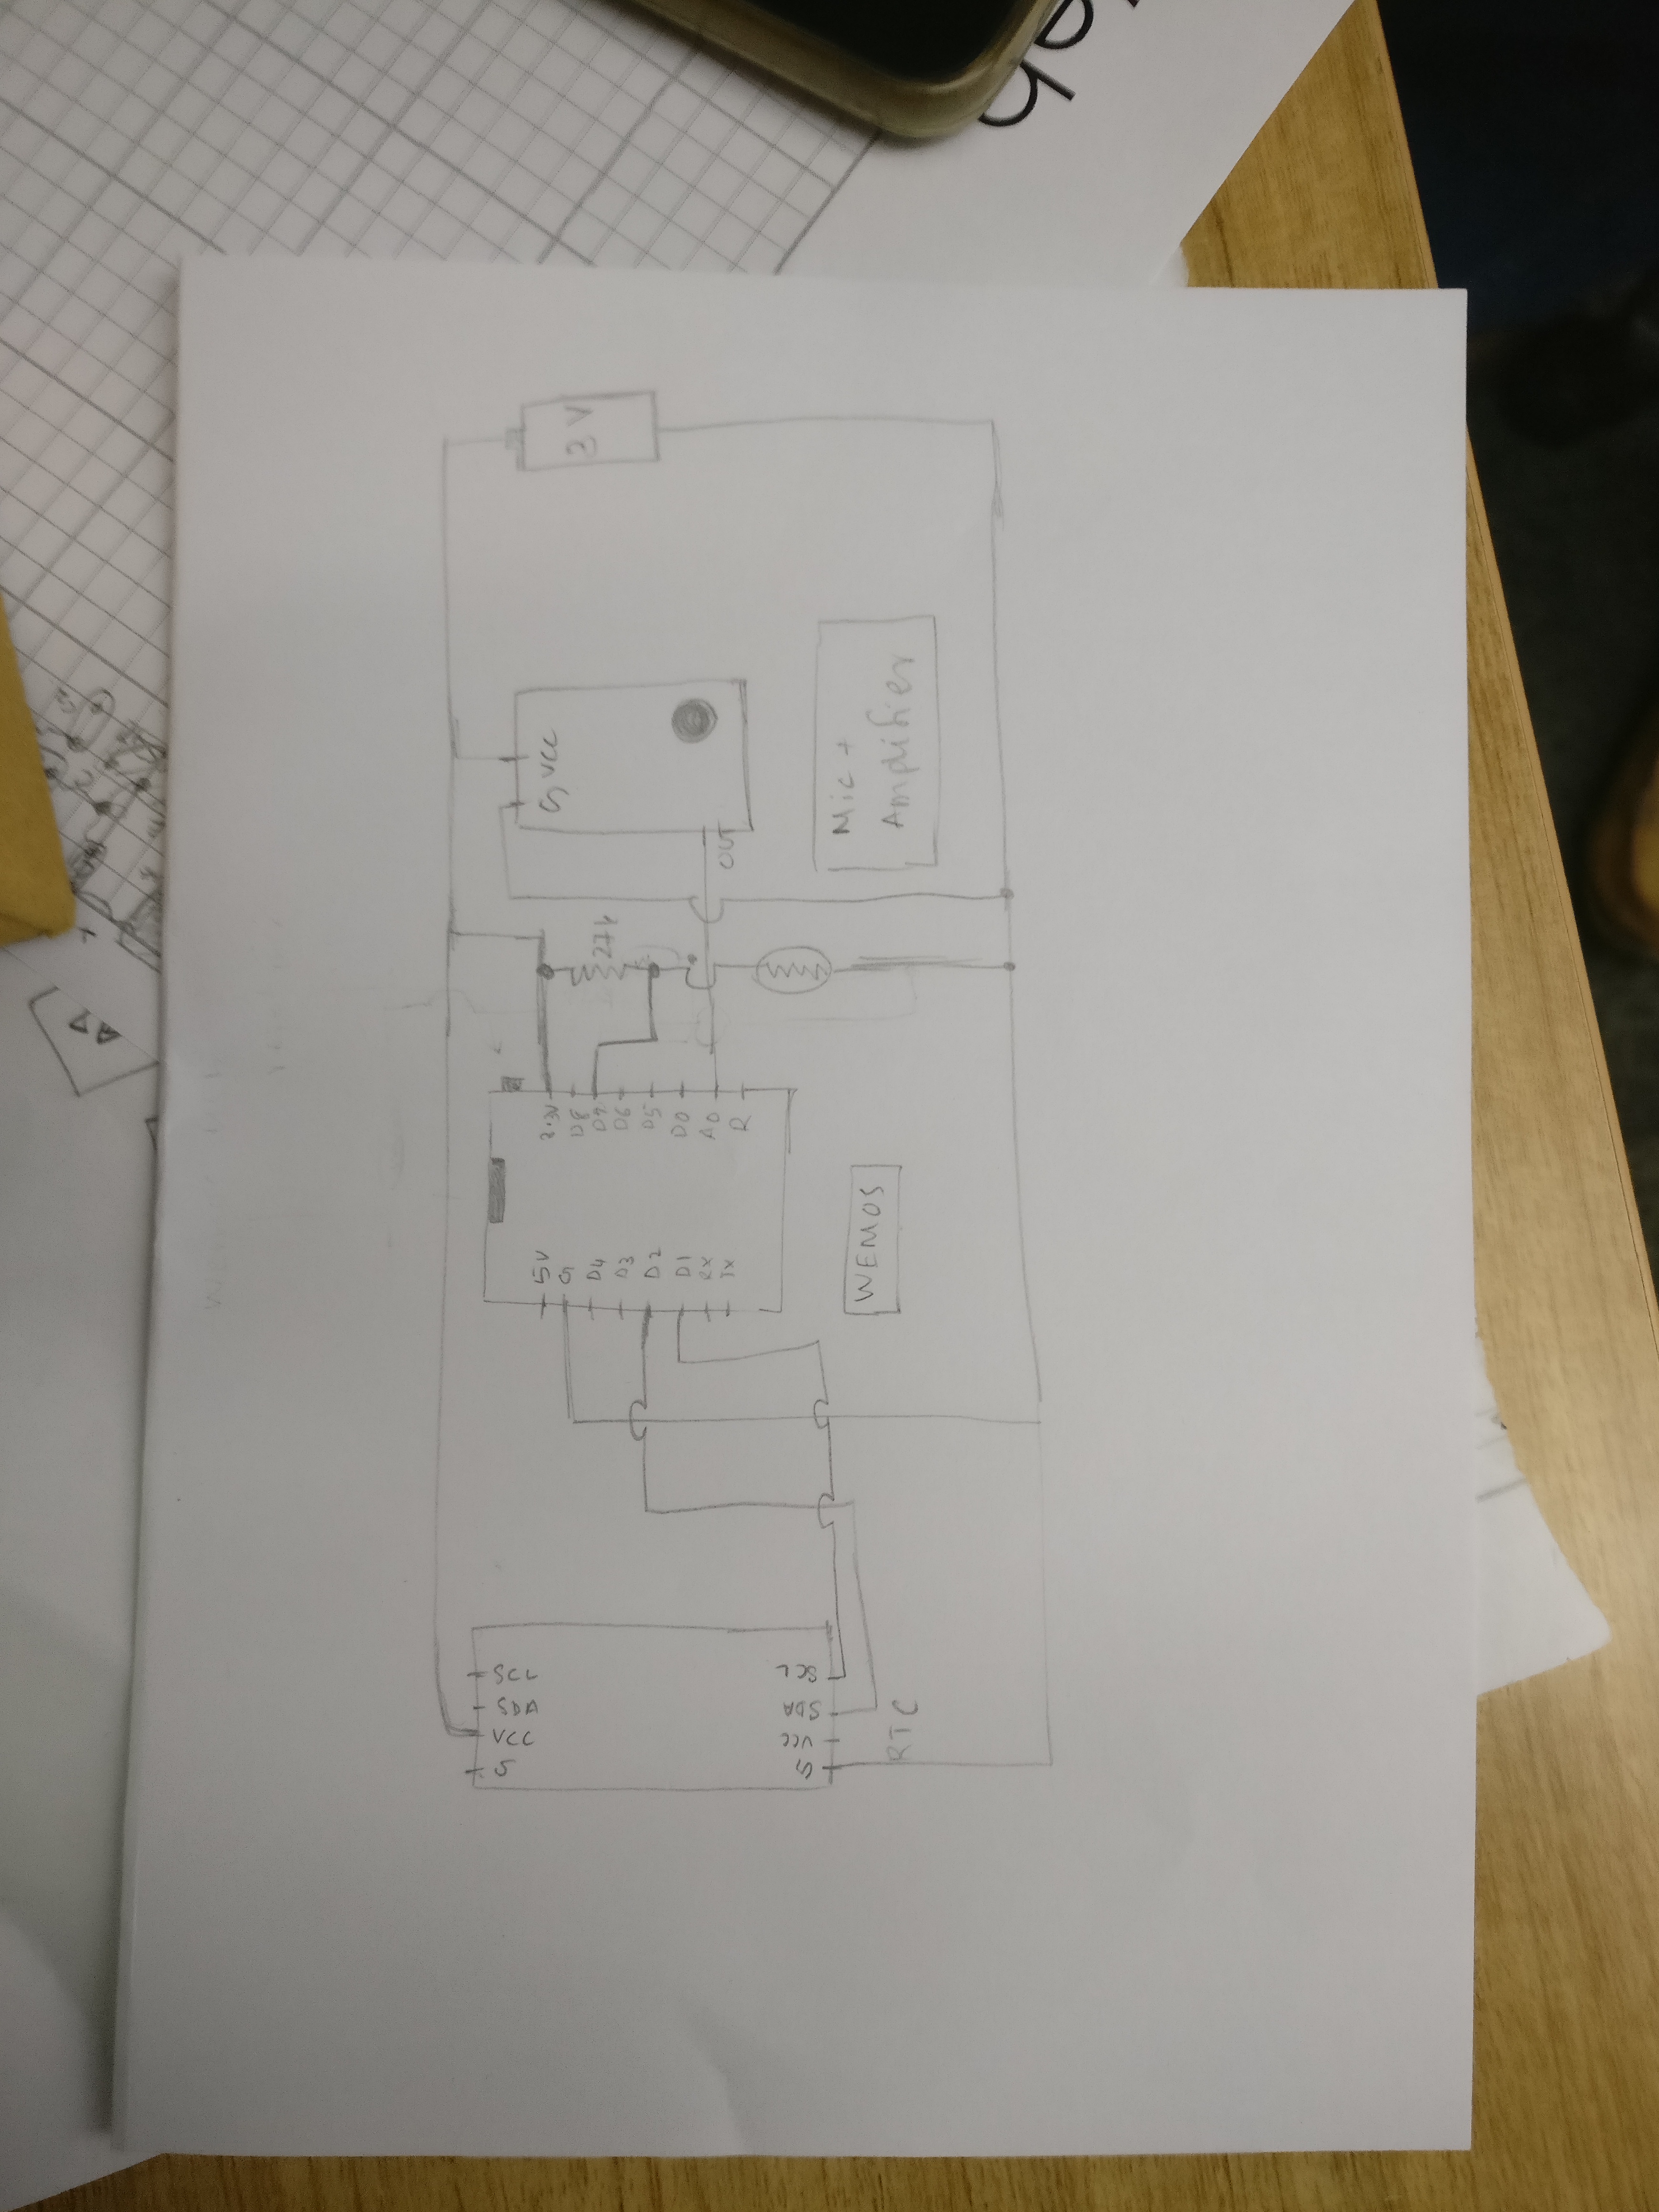 G
VCC
SDA
SCL
G
VCC
SDA
SCL
RTC
5V
G
D4
D3
D2
D1
RX
TX
3.3V
D8
D7
D6
D5
D0
A0
R
WEMOS
27k
G VCC
OUT
Mic +
Amplifier
3 V